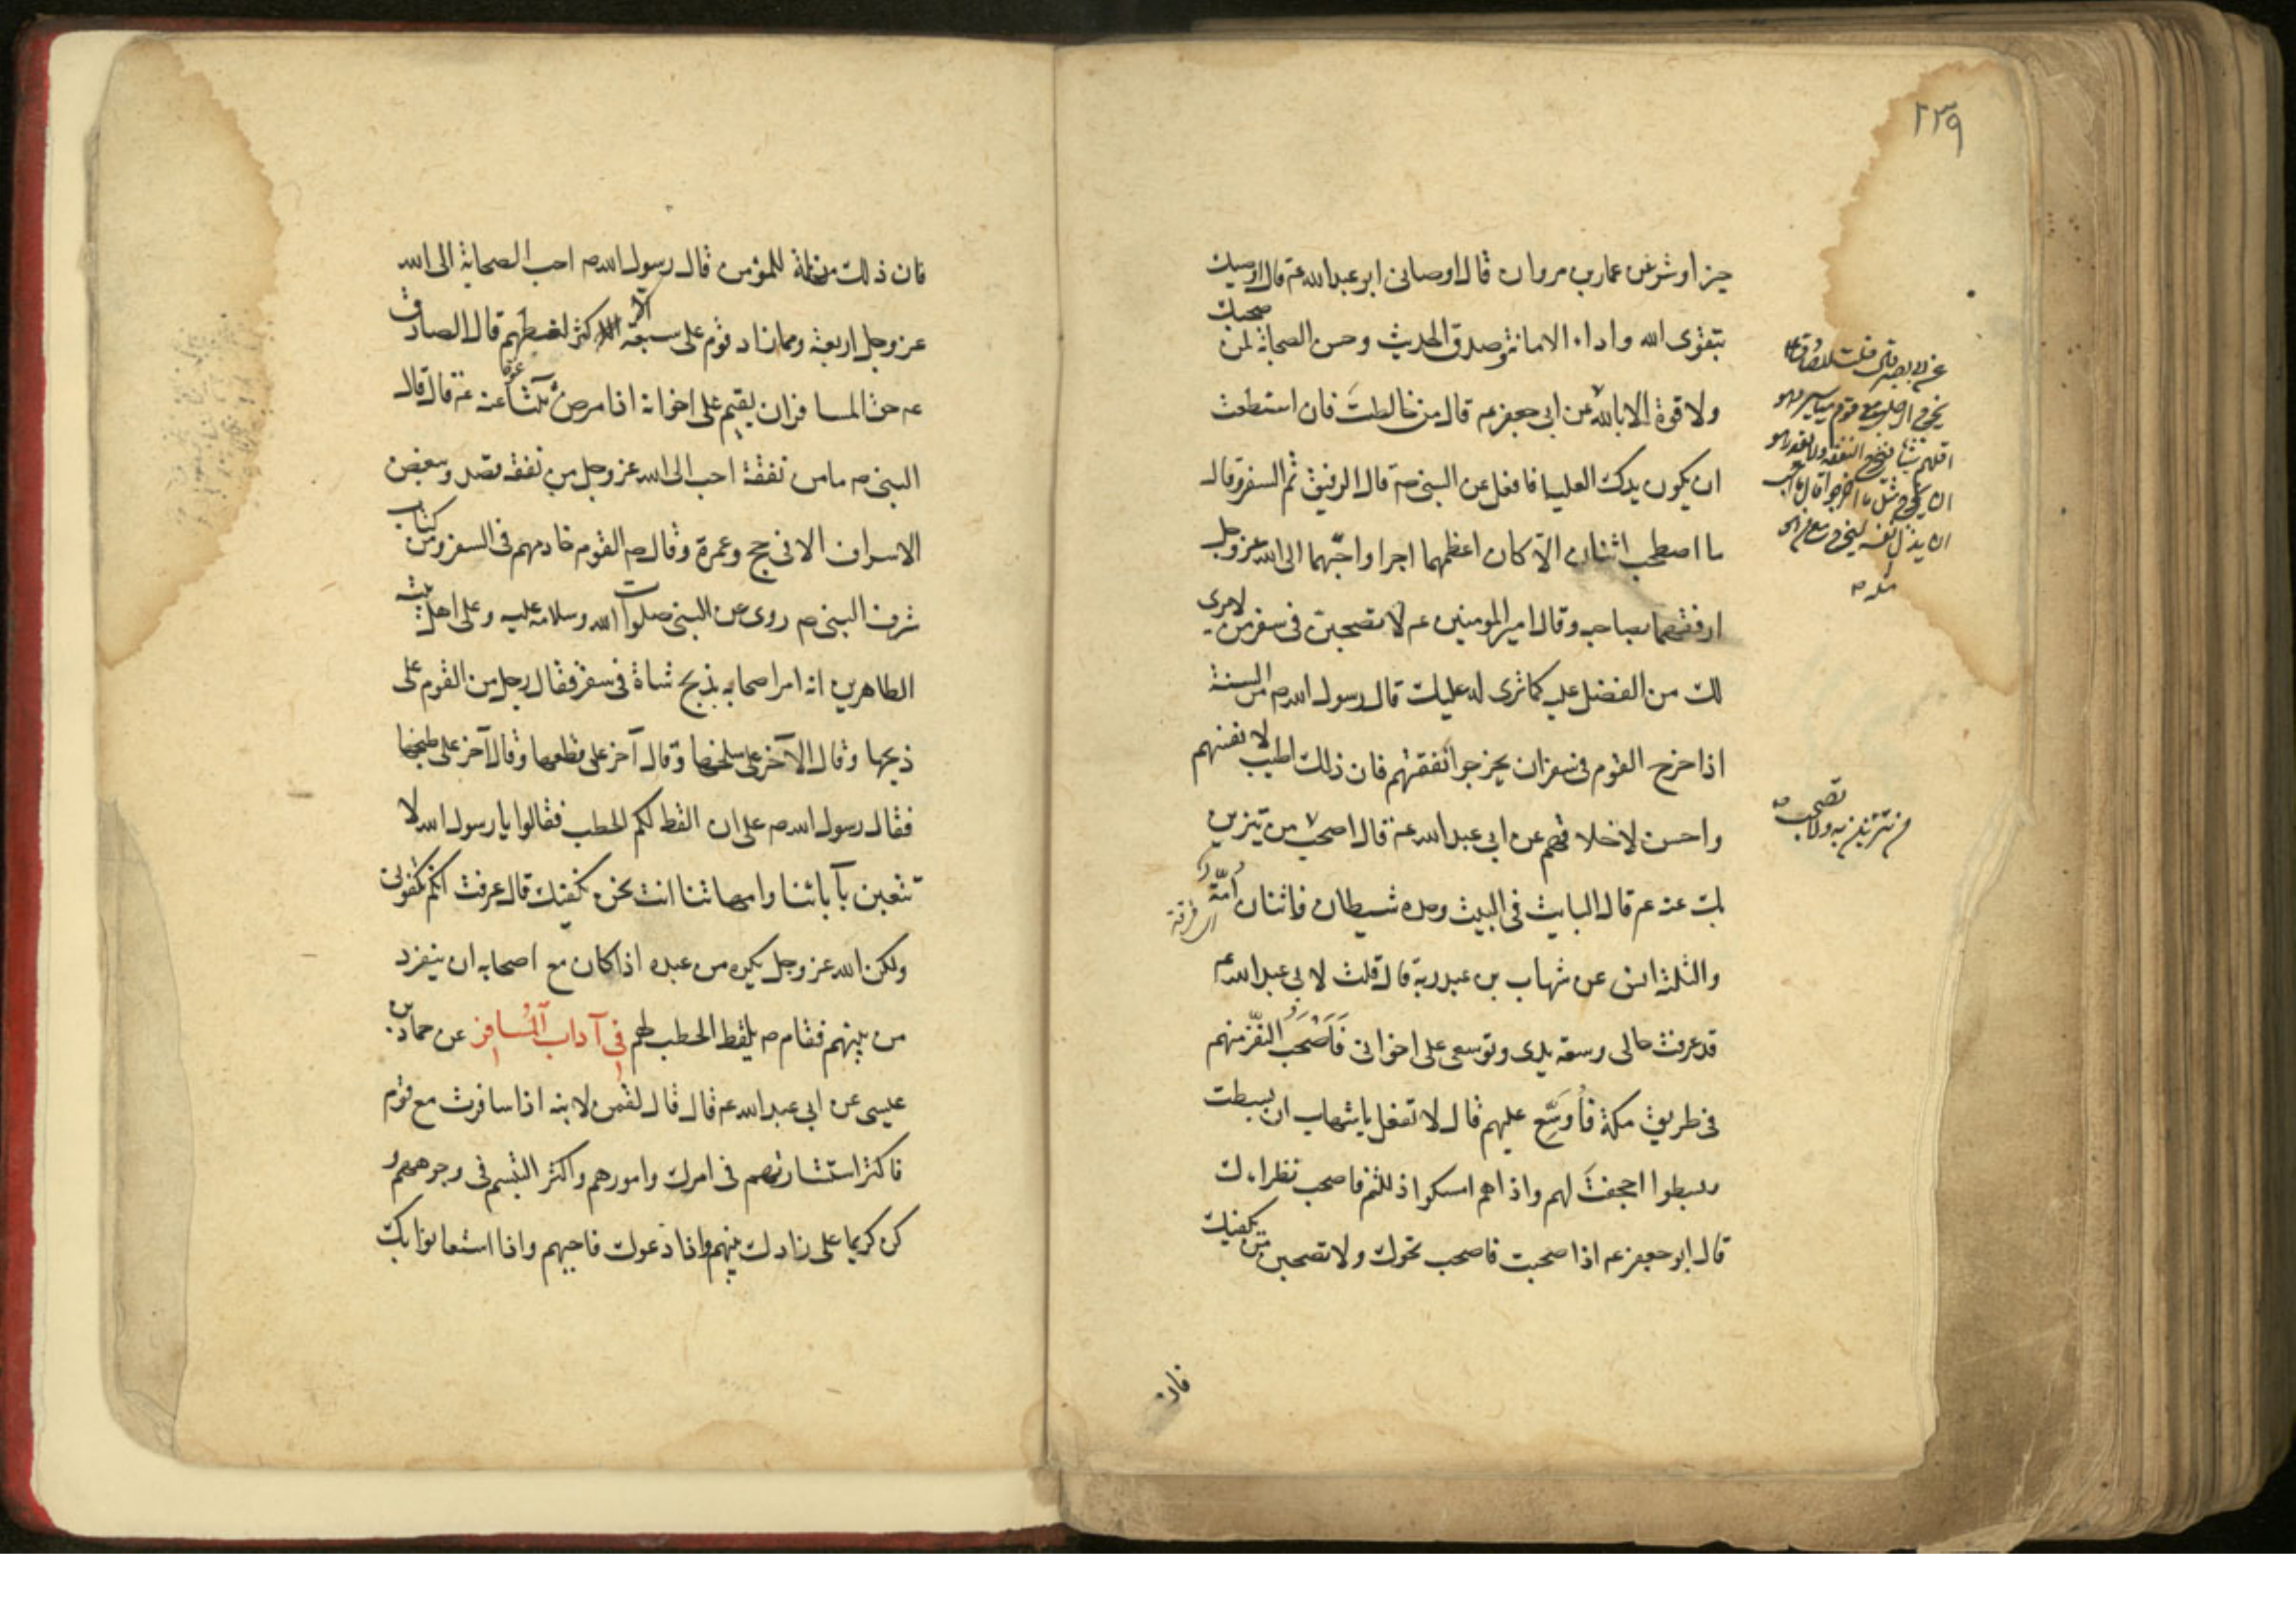 ٢٣٩
خيرا وشر عن عمار بن مروان قال اوصانى ابو عبد الله ع قال اوصيك
بتقوى الله واداء الامانة وصدق الحديث وحسن الصحابة لمن صحبك
ولا قوة الا بالله عن ابى جعفر ع قال من خالطت فان استطعت
ان يكون يدك العليا فافعل عن النبى ص قال الرفيق ثم السفر وقال
ما اصطحب اثنان الا كان اعظمهما اجرا واحبهما الى الله عز وجل
ارفقهما بصاحبه وقال امير المومنين ع لا تصحبن فى سفر من لا يرى
لك من الفضل عليه كما ترى له عليك قال رسول الله ص من السنة
اذا خرج القوم فى سفر ان يخرجوا نفقتهم فان ذلك اطيب لانفسهم
واحسن لاخلاقهم عن ابى عبد الله ع قال اصحب من تتزين
بك عنه ع قال البايت فى البيت وحده شيطان واثنان لمة
والثلثة انس عن شهاب بن عبد ربه قال قلت لابى عبد الله ع
قد عرفت حالى وسعة يدى وتوسعى على اخوانى فَاَصْحَبُ النفر منهم
فى طريق مكة فأوَسِّع عليهم قال لا تفعل يا شهاب ان بسطت
وبسطوا اجحفتَ لهم واذا هم امسكوا اذللتهم فاصحب نظراءك
قال ابو جعفر ع اذا صحبت فاصحب نحوك ولا تصحبن من يكفيك
فان
عن ابى بصير قال قلت للصادق ع
يخرج الرجل مع قوم مياسير وهو
اقلهم شيئا فيخرج القوم النفقة ولا يقدر هو
ان يخرج مثل ما اخرجوا قال ما احب
ان يذل نفسه ليخرج مع من هو
مثله
من تتزين به ولا تصحب
فان ذلك مذلة للمؤمن قال رسول الله ص احب الصحابة الى الله
عز وجل اربعة وما زاد قوم على سبعة الا كثر لغطهم قال الصادق
ع حق المسافر ان يقيم عليه اخوانه اذا مرض ثلثا عنه ع قال قال
النبى ص ما من نفقة احب الى الله عز وجل من نفقة قصد ويبغض
الاسراف الا فى حج وعمرة وقال ص القوم خادمهم فى السفر ومن كتاب
شرف النبى ص روى عن النبى صلوات الله وسلامه عليه وعلى اهل بيته
الطاهرين انه امر اصحابه بذبح شاة فى سفر فقال رجل من القوم على
ذبحها وقال الآخر على سلخها وقال آخر على قطعها وقال آخر على طبخها
فقال رسول الله ص على ان القط لكم الحطب فقالوا يا رسول الله لا
تتعبن بآبائنا وامهاتنا انت نحن نكفيك قال عرفت انكم تكفونى
ولكن الله عز وجل يكره من عبده اذا كان مع اصحابه ان ينفرد
من بينهم فقام ص يلقط الحطب لهم فى آداب المسافر عن حماد بن
عيسى عن ابى عبد الله ع قال قال لقمن لابنه اذا سافرت مع قوم
فاكثر استشارتهم فى امرك وامورهم واكثر التبسم فى وجوههم و
كن كريما على زادك بينهم واذا دعوك فاجبهم واذا استعانوا بك